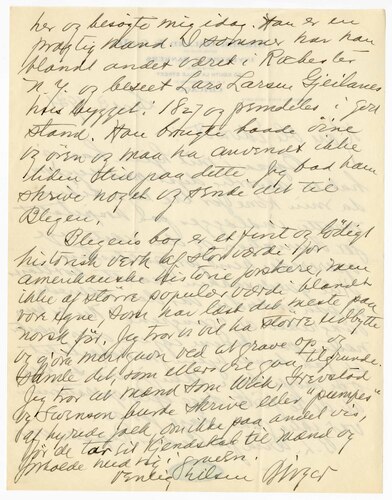 her og besøgte mig idag. Han er en
prægtig mand. I sommer har han
blandt andet været i Rochester
N.Y. og beseet Lars Larsen Geilanes
hus bygget 1827 og fremdeles i god
stand. Han brugte baade øine
og ører og maa ha anvendt ikke
liden flid paa dette. Jeg bad ham
skrive noget og sende det til
Blegen.
Blegens bog er et fint og lødigt
historisk verk af stor værdi for
amerikanske historie forskere, men
ikke af større populær værdi blandt
vore egne, som har læst det meste paa
norsk før. Jeg tror vi vil ha større udbytte
og gjøre mer gavn ved at grave op og
samle det, som ellers vil gaa tilgrunde.
Jeg tror at mænd som Wick, Grevstad
og Swenson burde skrive eller "pumpes"
af kyndige folk om ikke paa andet vis,
før de tar sit kjendskab til mænd og
forholde med sig i graven.
Venlig hilsen